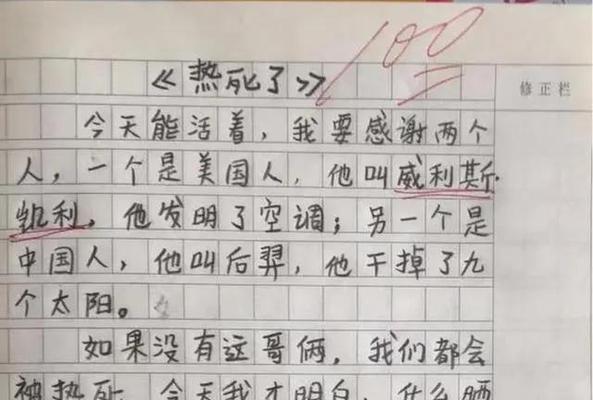 100
《热死了》
修正栏
今天能活着，我要感谢两个
人，一个是美国人，他叫威利斯·
凯利，他发明了空调；另一个是
中国人，他叫后羿，他干掉了九
个太阳。
如果没有这哥俩，我们都会
被热死，今天我才明白，什么晒